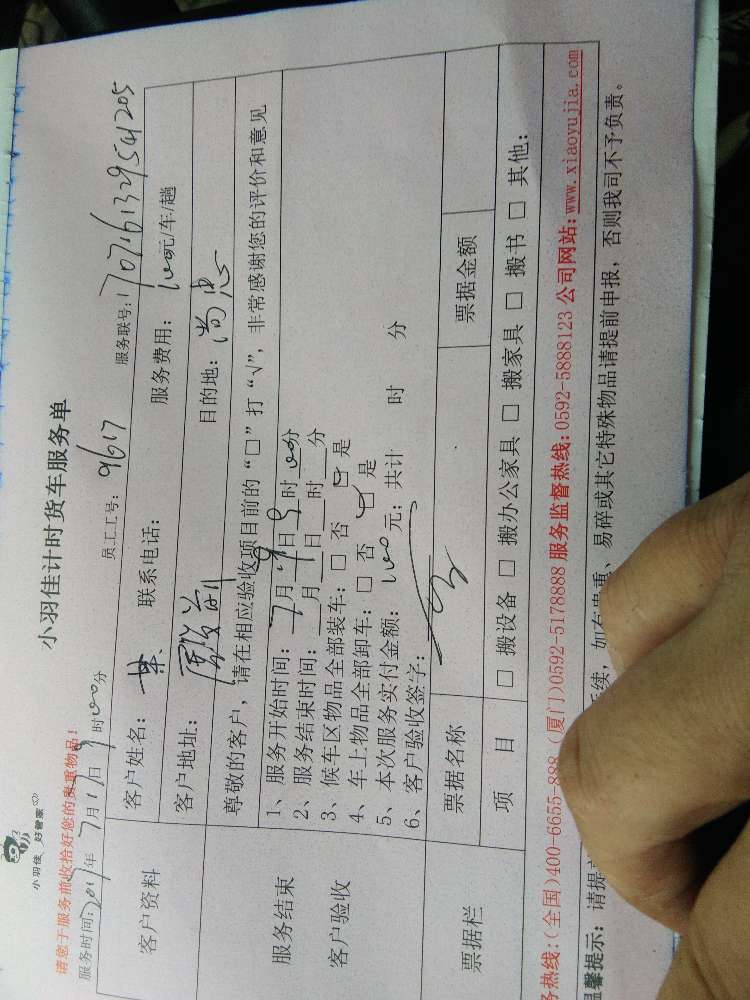 小羽佳 好管家
小羽佳计时货车服务单
请您于服务前收拾好您的贵重物品!
服务时间:2017年7月19日9时00分 员工工号: 9617 服务联号:170761329541205
客户资料
客户姓名: 联系电话: 服务费用: 100元/车/趟
客户地址: 目的地: 尚忠
服务结束
客户验收
尊敬的客户, 请在相应验收项目前的“□”打“√”, 非常感谢您的评价和意见
1、服务开始时间: 7月19日9时00分
2、服务结束时间: 月 日 时 分
3、候车区物品全部装车: □ 否 ☑ 是
4、车上物品全部卸车: □ 否 ☑ 是
5、本次服务实付金额: 100元; 共计 时 分
6、客户验收签字:
票据栏
票据名称 票据金额
项 目 □ 搬设备 □ 搬办公家具 □ 搬家具 □ 搬书 □ 其他:
务热线:(全国)400-6655-888 (厦门)0592-5178888 服务监督热线:0592-5888123 公司网站:www.xiaoyujia.com
温馨提示: 请提 手续, 如有贵重、易碎或其它特殊物品请提前申报, 否则我司不予负责。